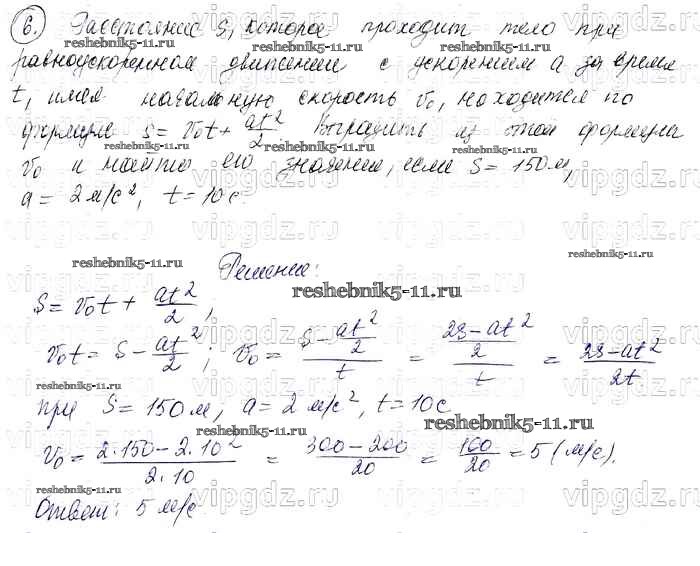 6. Расстояние S, которое проходит тело при
равноускоренном движении с ускорением a за время
t, имея начальную скорость v₀, находится по
формуле S = v₀t + at²/2. Выразить из этой формулы
v₀ и найти его значение, если S = 150 м,
a = 2 м/с², t = 10 с.
Решение:
S = v₀t + at²/2;
v₀t = S − at²/2; v₀ = (S − at²/2)/t = ((2S − at²)/2)/t = (2S − at²)/2t
при S = 150 м, a = 2 м/с², t = 10 с
v₀ = (2·150 − 2·10²)/(2·10) = (300 − 200)/20 = 100/20 = 5 (м/с).
Ответ: 5 м/с
reshebnik5-11.ru
vipgdz.ru